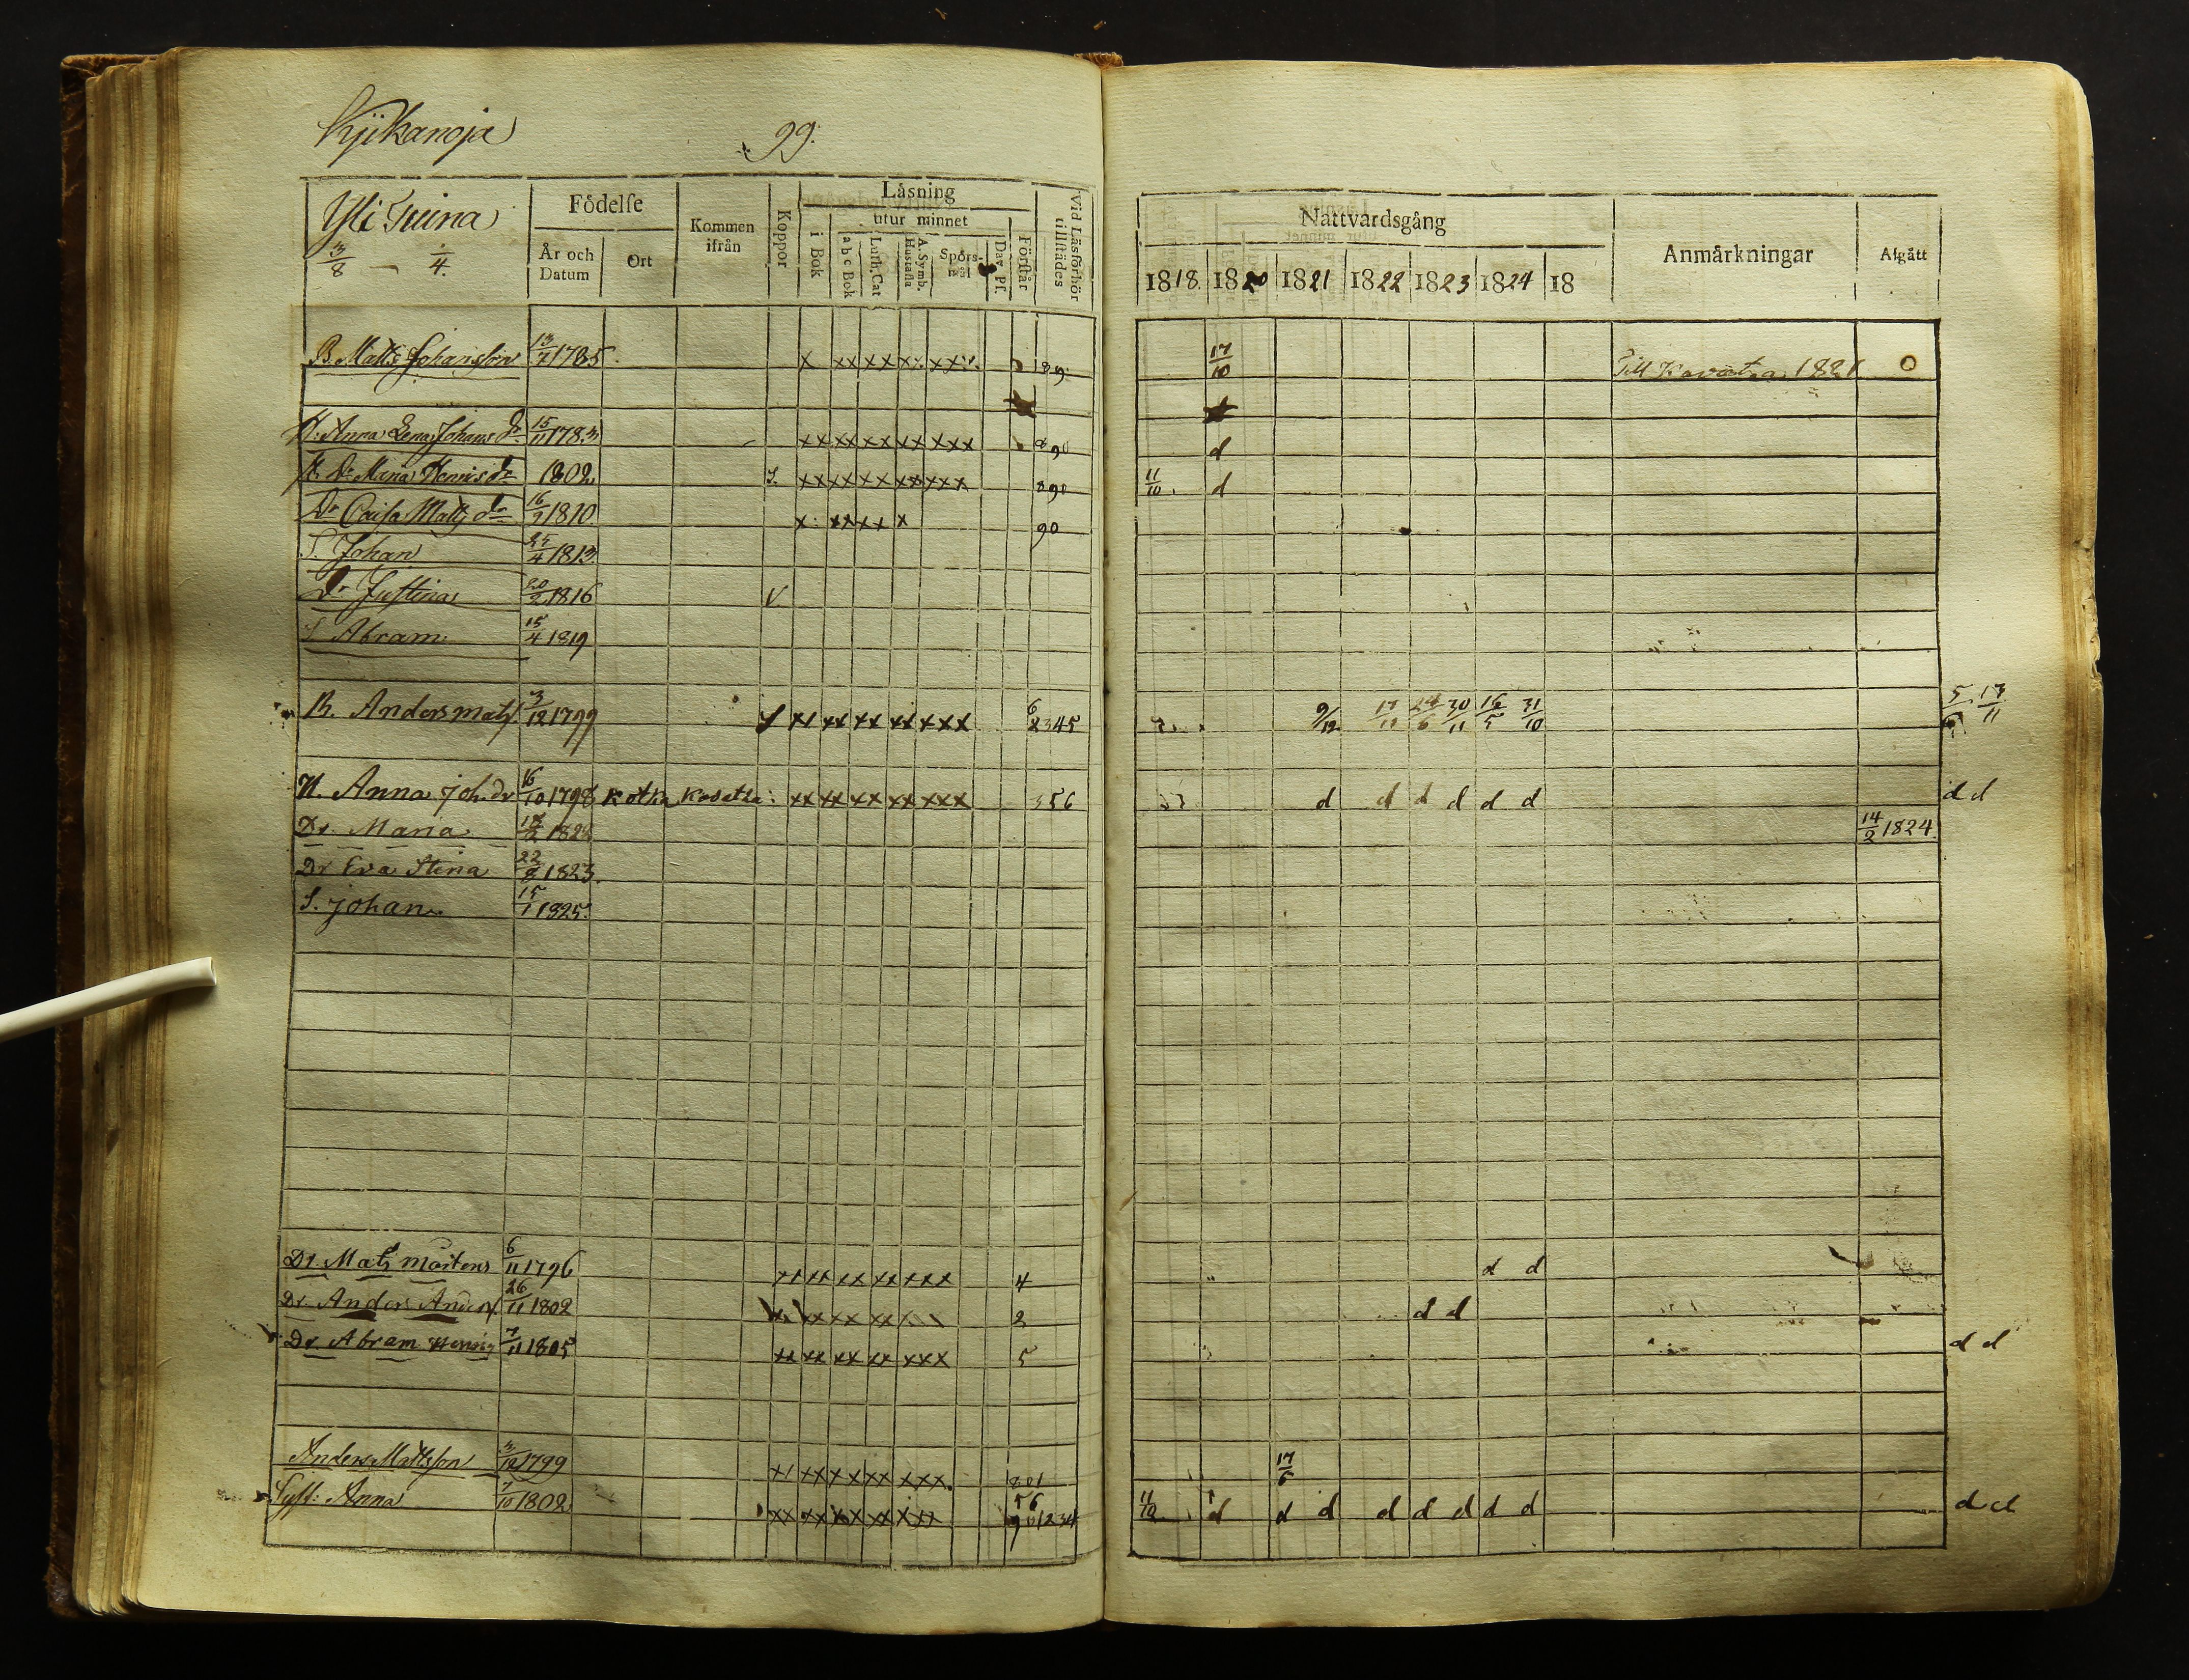 99.
Yli Tuina
3/8 — 1/4.
Födelse
År och Datum
Ort
Kommen ifrån
Koppor
Läsning
i Bok
utur minnet
a b c Bok
Luth. Cat
A. Symb. Hustafla
Spörsmål
Dav. Ps.
Förstår
Vid Läsförhör tillstädes
Nattvardsgång
1818. 1820 1821 1822 1823 1824 18
Anmärkningar
Afgått
B. Matts Johansson 1785 x xx xx 89. 17/10 Till 1821 O
H. Anna Lena Johans dr 15/11 1783 xx xx xx xx xxx 90 d
Maria Henrics dr 1802 xx xx xx xx xxx 890 11/10. d
Dr Caisa Matts dr 16/2 1810 x xx xx x 90
S. Johan 25/4 1813
Dr Justina 20/2 1816 v
S Abram 15/4 1819
B. Anders mats 3/12 1799 xx xx xx xxx 6 2345 9/12 17/11 24/6 30/11 16/5 31/10 17/11
H. Anna Joh. dr 16/10 1798 Kotka xx xx xx xx xxx 356 d d d d d d d d
Dr. Maria 14/2 1824.
Dr Eva Stina 22/9 1823.
S. johan 15/1 1825.
Dr. Mats mårtens 6/11 1796 xx xx xx xx xxx 4 d d
Dr. Anders Anders. 26/11 1802 xx xx xx 2 d d
Dr. Abram 7/11 1805 xx xx xx xx xxx 5 d d
Anders Mattsson 3/12 1799 xx xx xx xxx. 801 17/6
Syst: Anna 7/10 1802 xx xx xx xx xxx 56 901234 11/10 d d d d d d d d d d